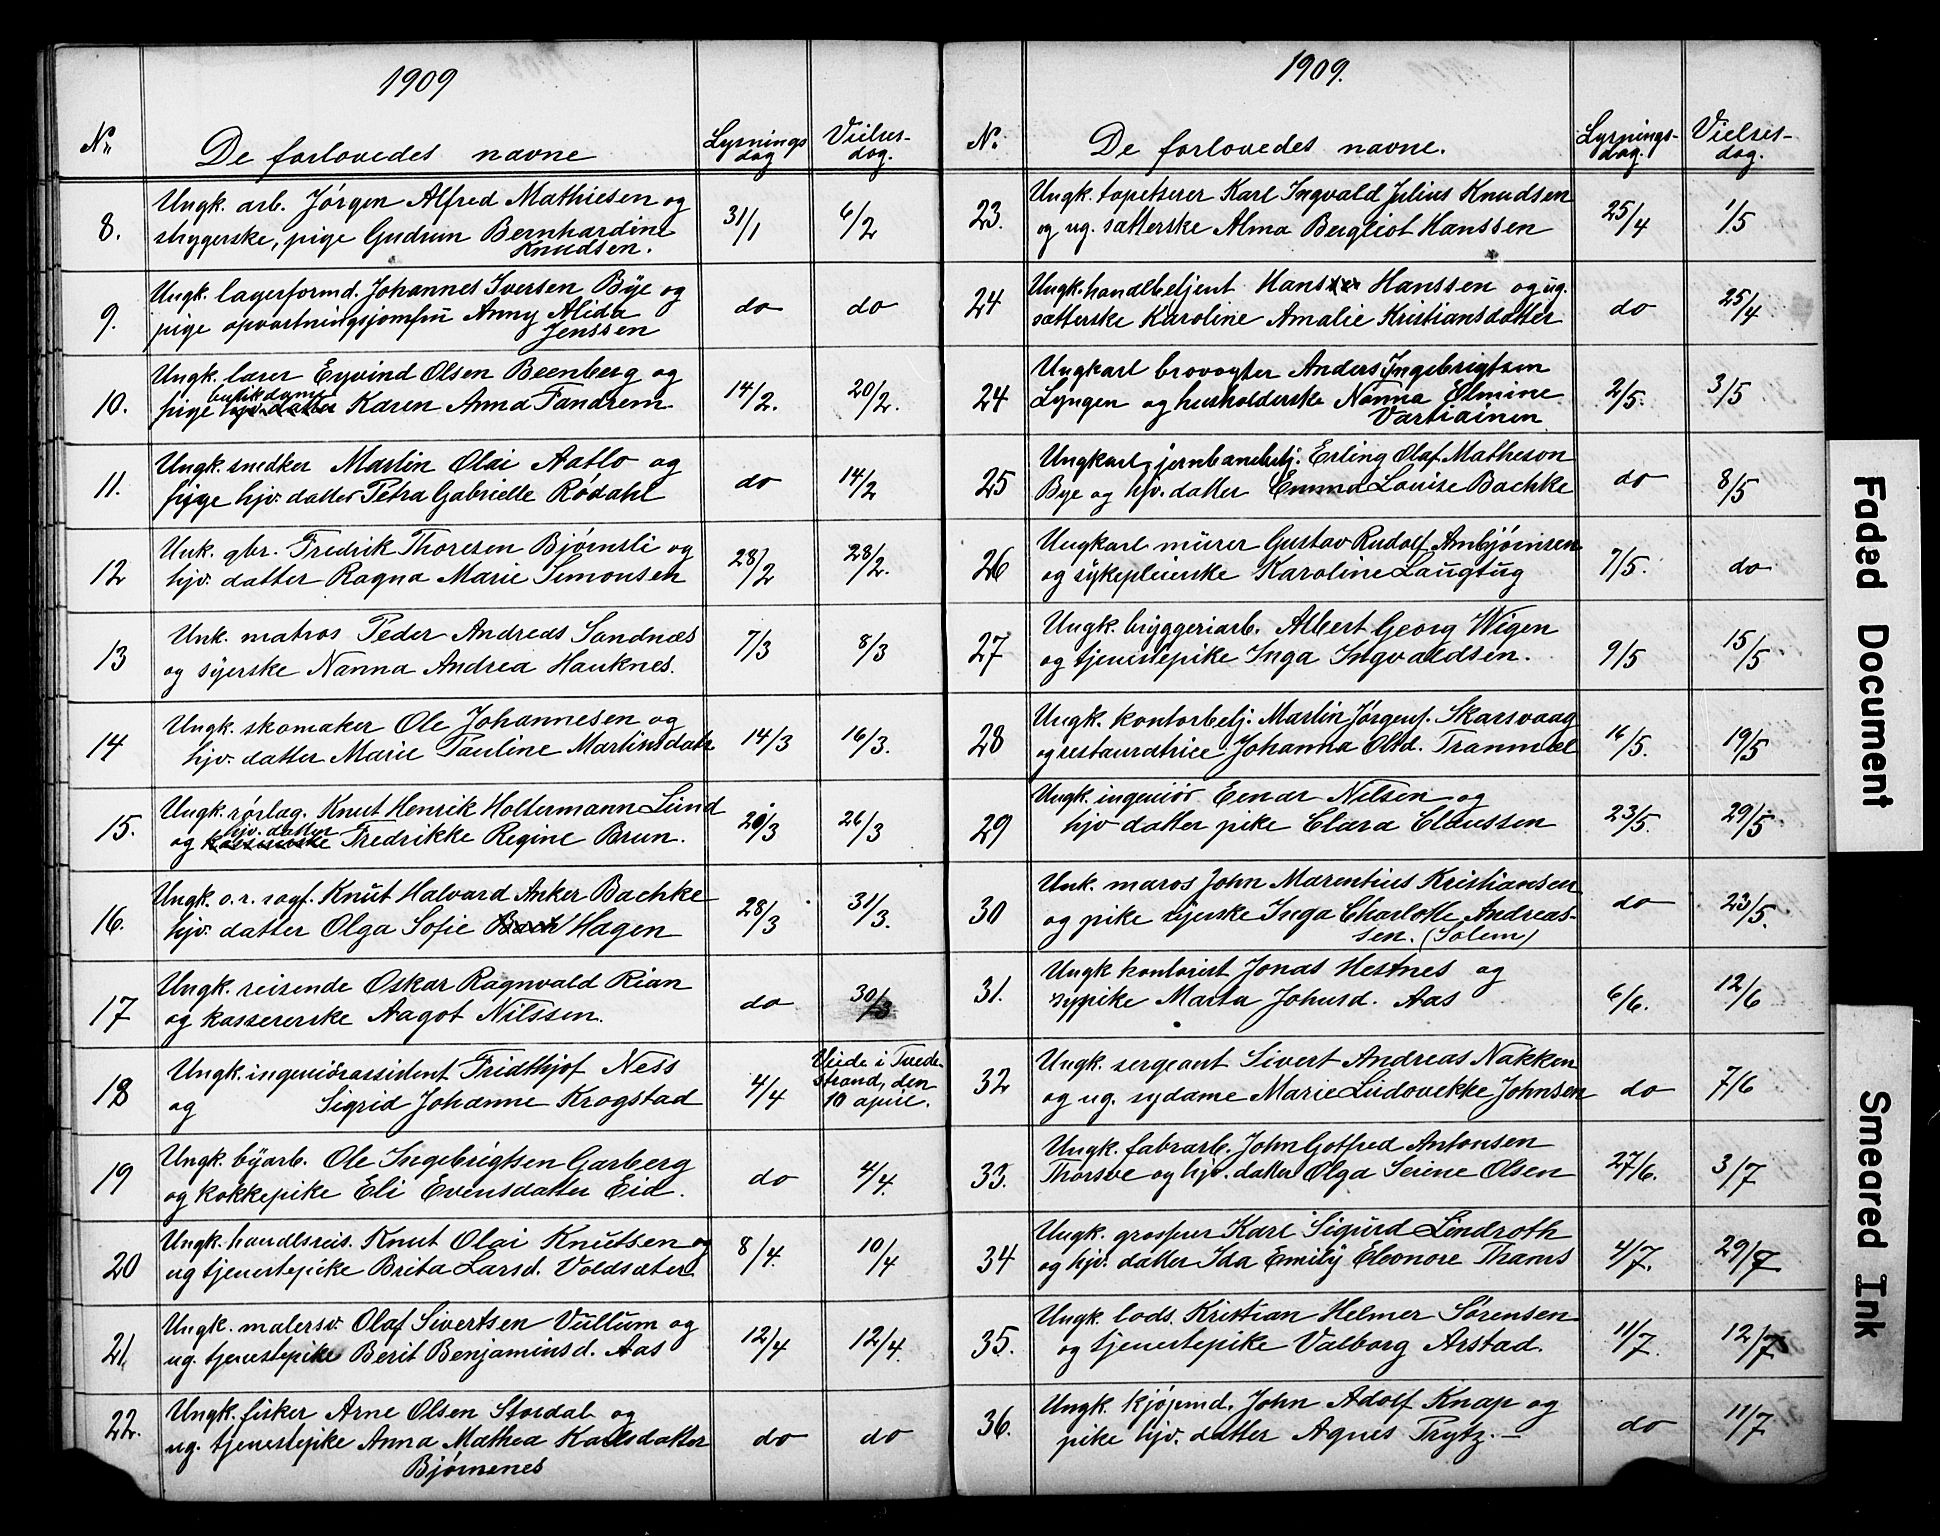 1909
Nr. De forlovedes navne Lysnings dag Vielses- dag.
8. Ungk. arb. Jørgen Alfred Mathiesen og 31/1 6/2
strygerske, pige Gudrun Bernhardine
Knudsen.
9. Ungk. lagerformd. Johannes Iversen Bye og do do
pige opvartningsjomfru Anny Alida
Jenssen
10. Ungk. lærer Eyvind Olsen Beenberg og 14/2. 20/2.
butikdame
pige hjv. datter Karen Anna Tandrem
11. Ungk. snedker Martin Olai Aatlo og do 14/2
pige hjv. datter Petra Gabrielle Rødahl
12 Unk. gbr. Fredrik Thoresen Bjørnsli og 28/2 28/2.
hjv. datter Ragna Marie Simonsen
13 Unk. matros Peder Andreas Sandnæs 7/3 8/3
og syerske Nanna Andrea Hauknes.
14 Ungk. skomaker Ole Johannesen og 14/3 16/3.
hjv. datter Marie Pauline Martinsdatr
15. Ungk. rørlæg. Knut Henrik Holtermann Lund 20/3 26/3
hjv. datter
og Fredrikke Regine Brun.
16. Ungk. o.r. sagf. Knut Halvard Anker Bachke 28/3 31/3.
hjv. datter Olga Sofie Bach Hagen
17 Ungk. reisende Oskar Ragnvald Rian do 30/3
og kassererske Aagot Nilssen.
18 Ungk. ingeniørassistent Fridthjof Ness 4/4 Viede i Tvede-
strand, den
og Sigrid Johanne Krogstad 10 april.
19 Ungk. byarb. Ole Ingebrigtsen Garberg do 4/4.
og kokkepike Eli Evensdatter Eid.
20 Ungk. handlsreis. Knut Olai Knutsen og 8/4. 10/4
ug tjenestepike Brita Larsd. Voldsæter
21. Ungk. malersv. Olaf Sivertsen Vullum og 12/4 12/4.
ug. tjenestepike Berit Benjaminsd. Aas
22. Ungk. fisker Arne Olsen Stordal og do do
ug. tjenestepike Anna Mathea Karlsdatter
Bjørnenes
1909.
Nr. De forlovedes navne. Lysnings- dag. Vielses- dag.
23. Ungk. tapetserer Karl Ingvald Julius Knudsen 25/4 1/5
og ug. sætterske Alma Bergliot Hanssen
24 Ungk. handlbetjent Hans Hanssen og ug. do 25/4
sætterske Karoline Amalie Kristiansdatter
24 Ungkarl brovogter Anders Ingebrigtsen 2/5. 3/5
Lyngen og husholderske Nanna Elmine
Vartiainen
25 Ungkarl jernbanebetj. Erling Olaf Matheson do 8/5
Bye og hjv. datter Emma Louise Bachke
26 Ungkarl murer Gustav Rudolf Arnbjørnsen 7/5. do
og sykepleierske Karoline Laugtug
27 Ungk. bryggeriarb. Albert Georg Wigen 9/5 15/5
og tjenestepike Inga Ingvaldsen.
28 Ungk. kontorbetj. Martin Jørgens. Skarsvaag 16/5. 19/5
og restauratrice Johanna Olsd. Tranmæl
29 Ungk. ingeniør Einar Nilsen og 23/5. 29/5
hjv datter pike Clara Claussen
30 Unk. maros John Marentius Kristiansen do 23/5.
og pike syerske Inga Charlotte Andreas-
sen. (Solem)
31. Ungk kontorist Jonas Hestnes og 6/6. 12/6
sypike Marta Johnsd. Aas
32 Ungk. sergeant Sivert Andreas Nakken do 7/6
og ug. sydame Marie Ludovekke Johnsen
33. Ungk. fabrarb. John Gotfred Antonsen 27/6. 3/7
Thorsve og hjv. datter Olga Seline Olsen
34 Ungk. grosserer Karl Sigurd Lindroth 4/7. 29/7
og hjv. datter Ida Emily Eleonore Thams
35. Ungk. lods. Kristian Helmer Sørensen 11/7. 12/7
og tjenestepike Valborg Arstad.
36. Ungk. kjøpmd. John Adolf Knap og do 11/7
pike hjv. datter Agnes Trytz. —
Faded Document
Smeared Ink